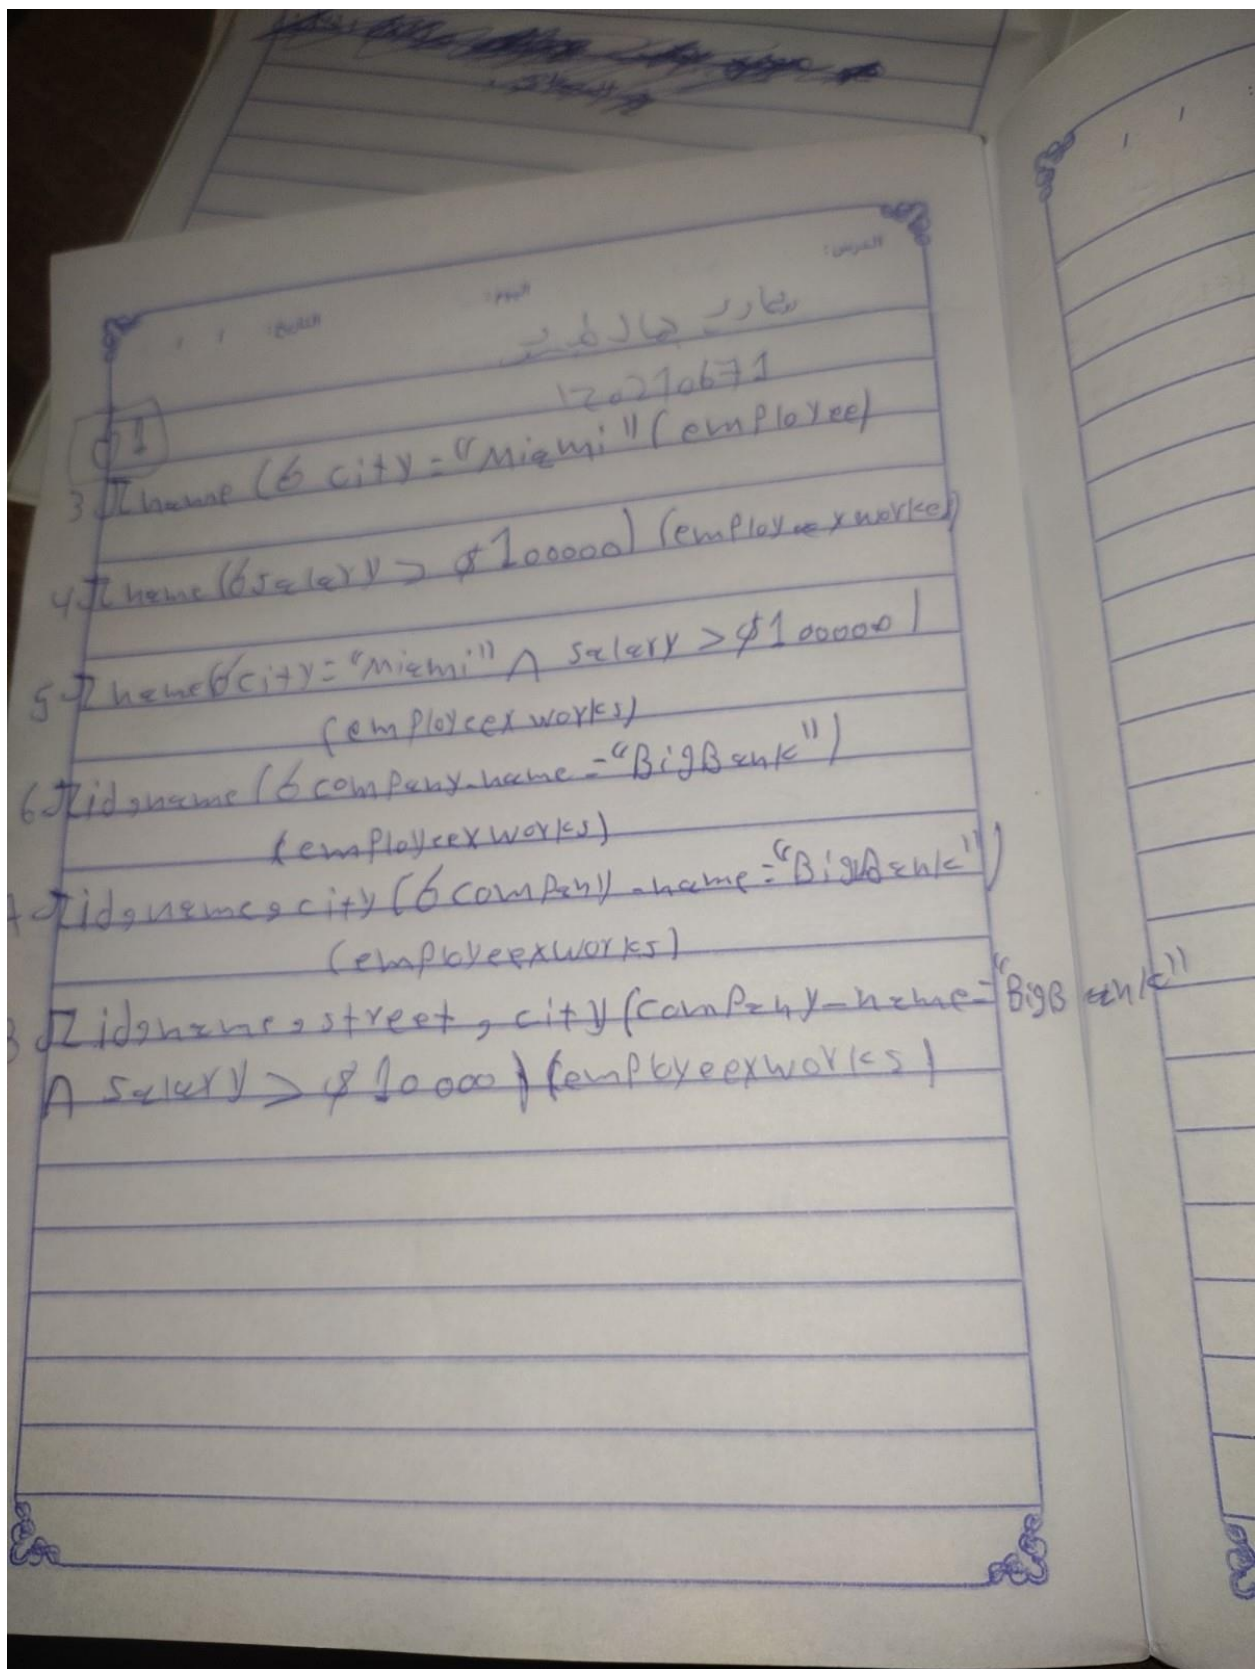 المدرس:
اليوم:
التاريخ:
120210671
Q1
3 π name (σ city = "Miami" (employee)
4 π name (σ salary > $100000) (employee x works)
5 π name σ city = "Miami" ∧ salary > $100000)
(employee x works)
6 π id, name (σ company-name = "BigBank")
(employee x works)
7 π id, name, city (σ company-name = "BigBank")
(employee x works)
8 π id, name, street, city (company-name = "BigBank"
∧ salary > $10000) (employee x works)